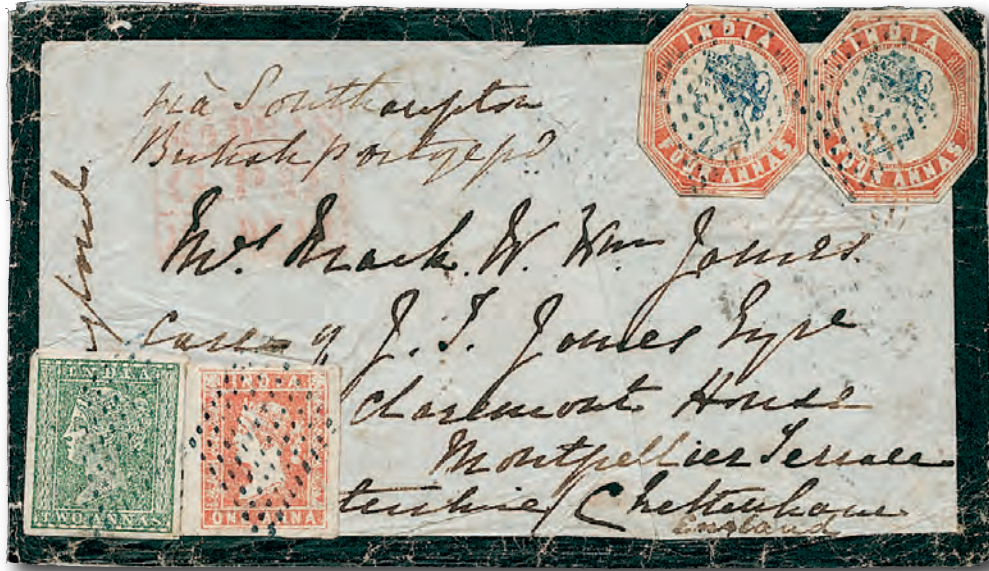 INDIA
FOUR ANNAS
INDIA
FOUR ANNAS
viâ Southampton
British postage pd
Mrs Mack. W. Wm James.
Care of J. T. James Esqre
Claremont House
Montpellier Terrace
Cheltenham
England
INDIA
TWO ANNAS
INDIA
ONE ANNA